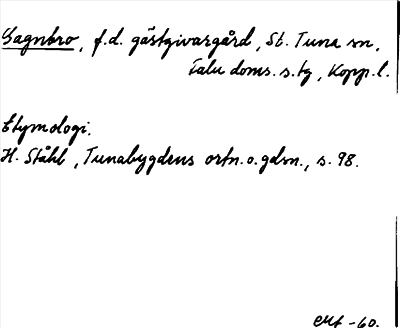 Sagnbro, f.d. gästgivargård, St. Tuna sn,
Falu doms. s. tg, Kopp. l.
Etymologi.
H. Ståhl, Tunabygdens ortn. o. gdsn., s. 98.
-60.